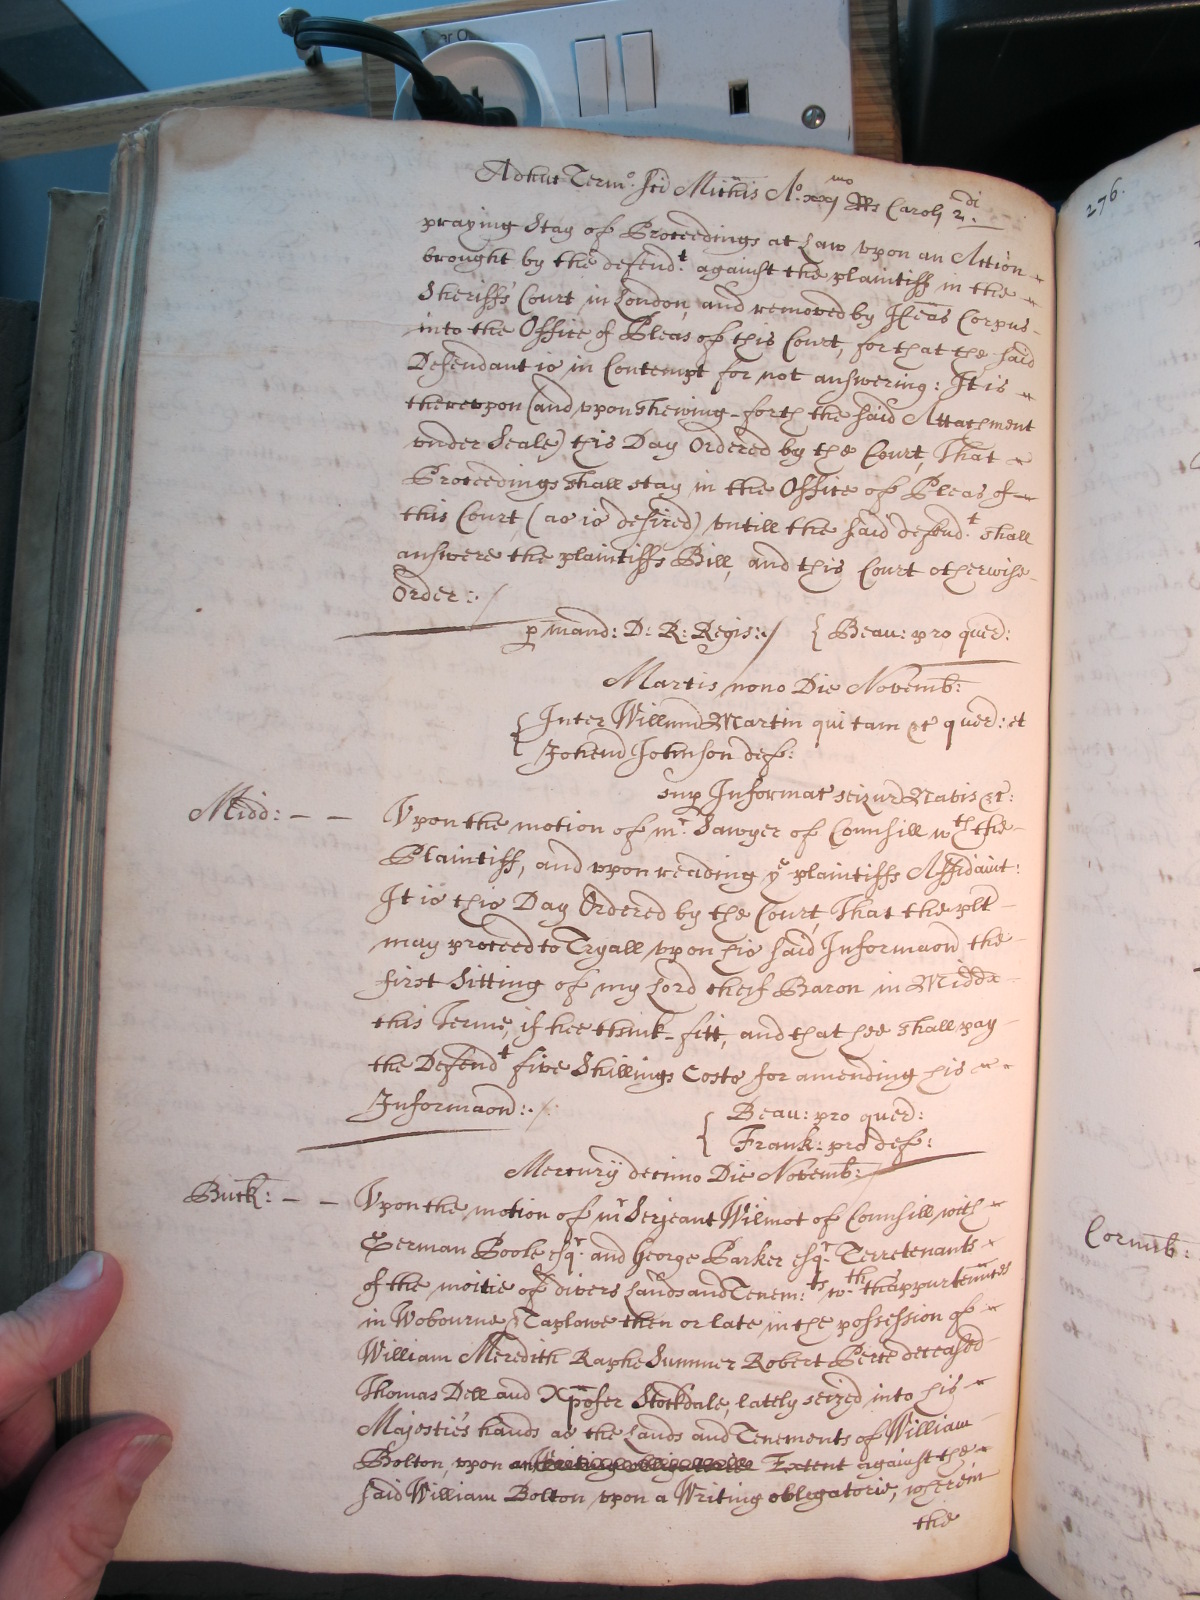 Adhuc Term.o Sci Michis A.o xxj mo Rs Caroli 2.di
praying Stay of Proceedings at Law vpon an Action
brought by the defend.t against the plaintiff in the
Sheriffs Court in London, and removed by Heas Corpus
into the Office of Pleas of this Court, for that the said
Defendant is in Contempt for not answering: It is
therevpon (and vpon shewing-forth the said Attachment
vnder Seale) this Day Ordered by the Court, That
Proceedings shall stay in the Office of Pleas of
this Court (as is desired) vntill the said defend.t shall
answere the plaintiffs Bill, and this Court otherwise
Order:./
p mand: D: R: Regis:./ { Beau: pro quer:
Martis nono Die Novemb:
{ Inter Willum Martin qui tam &c quer: et
Johem Johnson def:
sup Informac seizur Navis &c:
Midd: — — Vpon the motion of mr. Sawyer of Counsill wth the
Plaintiff, and vpon reading ye plaintiffs Affidavit:
It is this Day Ordered by the Court, That the plt
may proceed to Tryall vpon his said Informacon the
first Sitting of my Lord cheif Baron in Middx
this Terme, if hee think-fitt, and that hee shall pay
the Defend.t five Shillings Costs for amending his
Informacon:./
{ Beau: pro quer:
Frank: pro def:
Mercurij decimo Die Novemb:
Buck: — — Vpon the motion of mr Serjeant Wilmot of Counsill with
German Poole esqr. and George Parker esqr. Terretenants
of the moitie of divers Lands and Tenem:ts wth. thappurtenncs
in Wobourne, Taplowe then or late in the possession of
William Meredith Raphe Sumner Robert Perte deceased
Thomas Dell and Xpofer Stockdale, lately seized into his
Majesties hands as the Lands and Tenements of William
Bolton, vpon an Extent against the
said William Bolton vpon a Writing obligatorie, wherein
the
276.
Cornub: